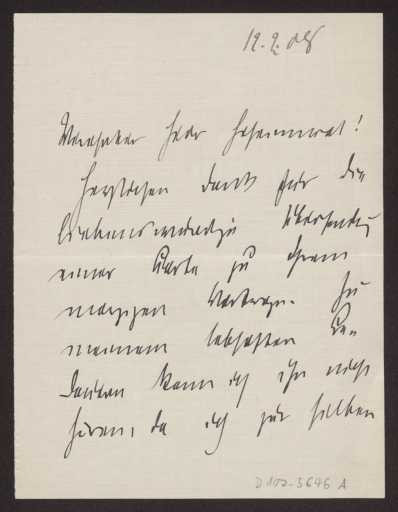 19.2.08
Verehrter Herr Geheimrat!
Herzlichen Dank für die
liebenswürdige Übersendung
einer Karte zu Ihrem
morgigen Vortrage. Zu
meinem lebhaften Be-
dauern kann ich ihn nicht
hören, da ich zur selben
D 102-3646 A